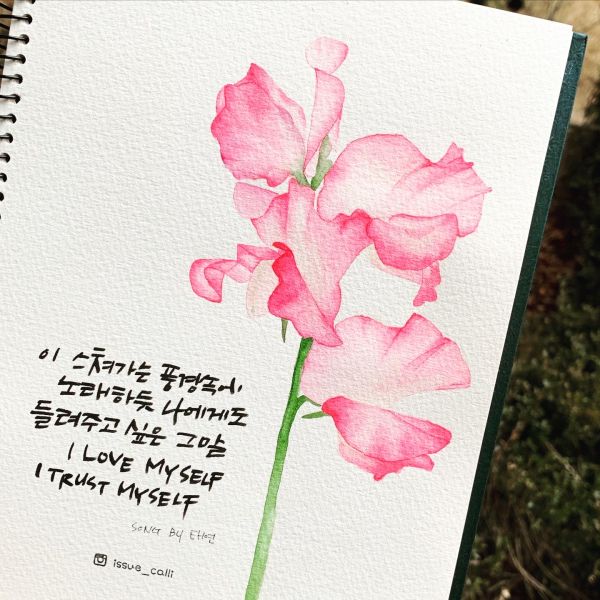 이 스쳐가는 풍경속에
노래하듯 나에게도
들려주고 싶은 그말
I LOVE MYSELF
I TRUST MYSELF
SONG BY 태연
issue_calli